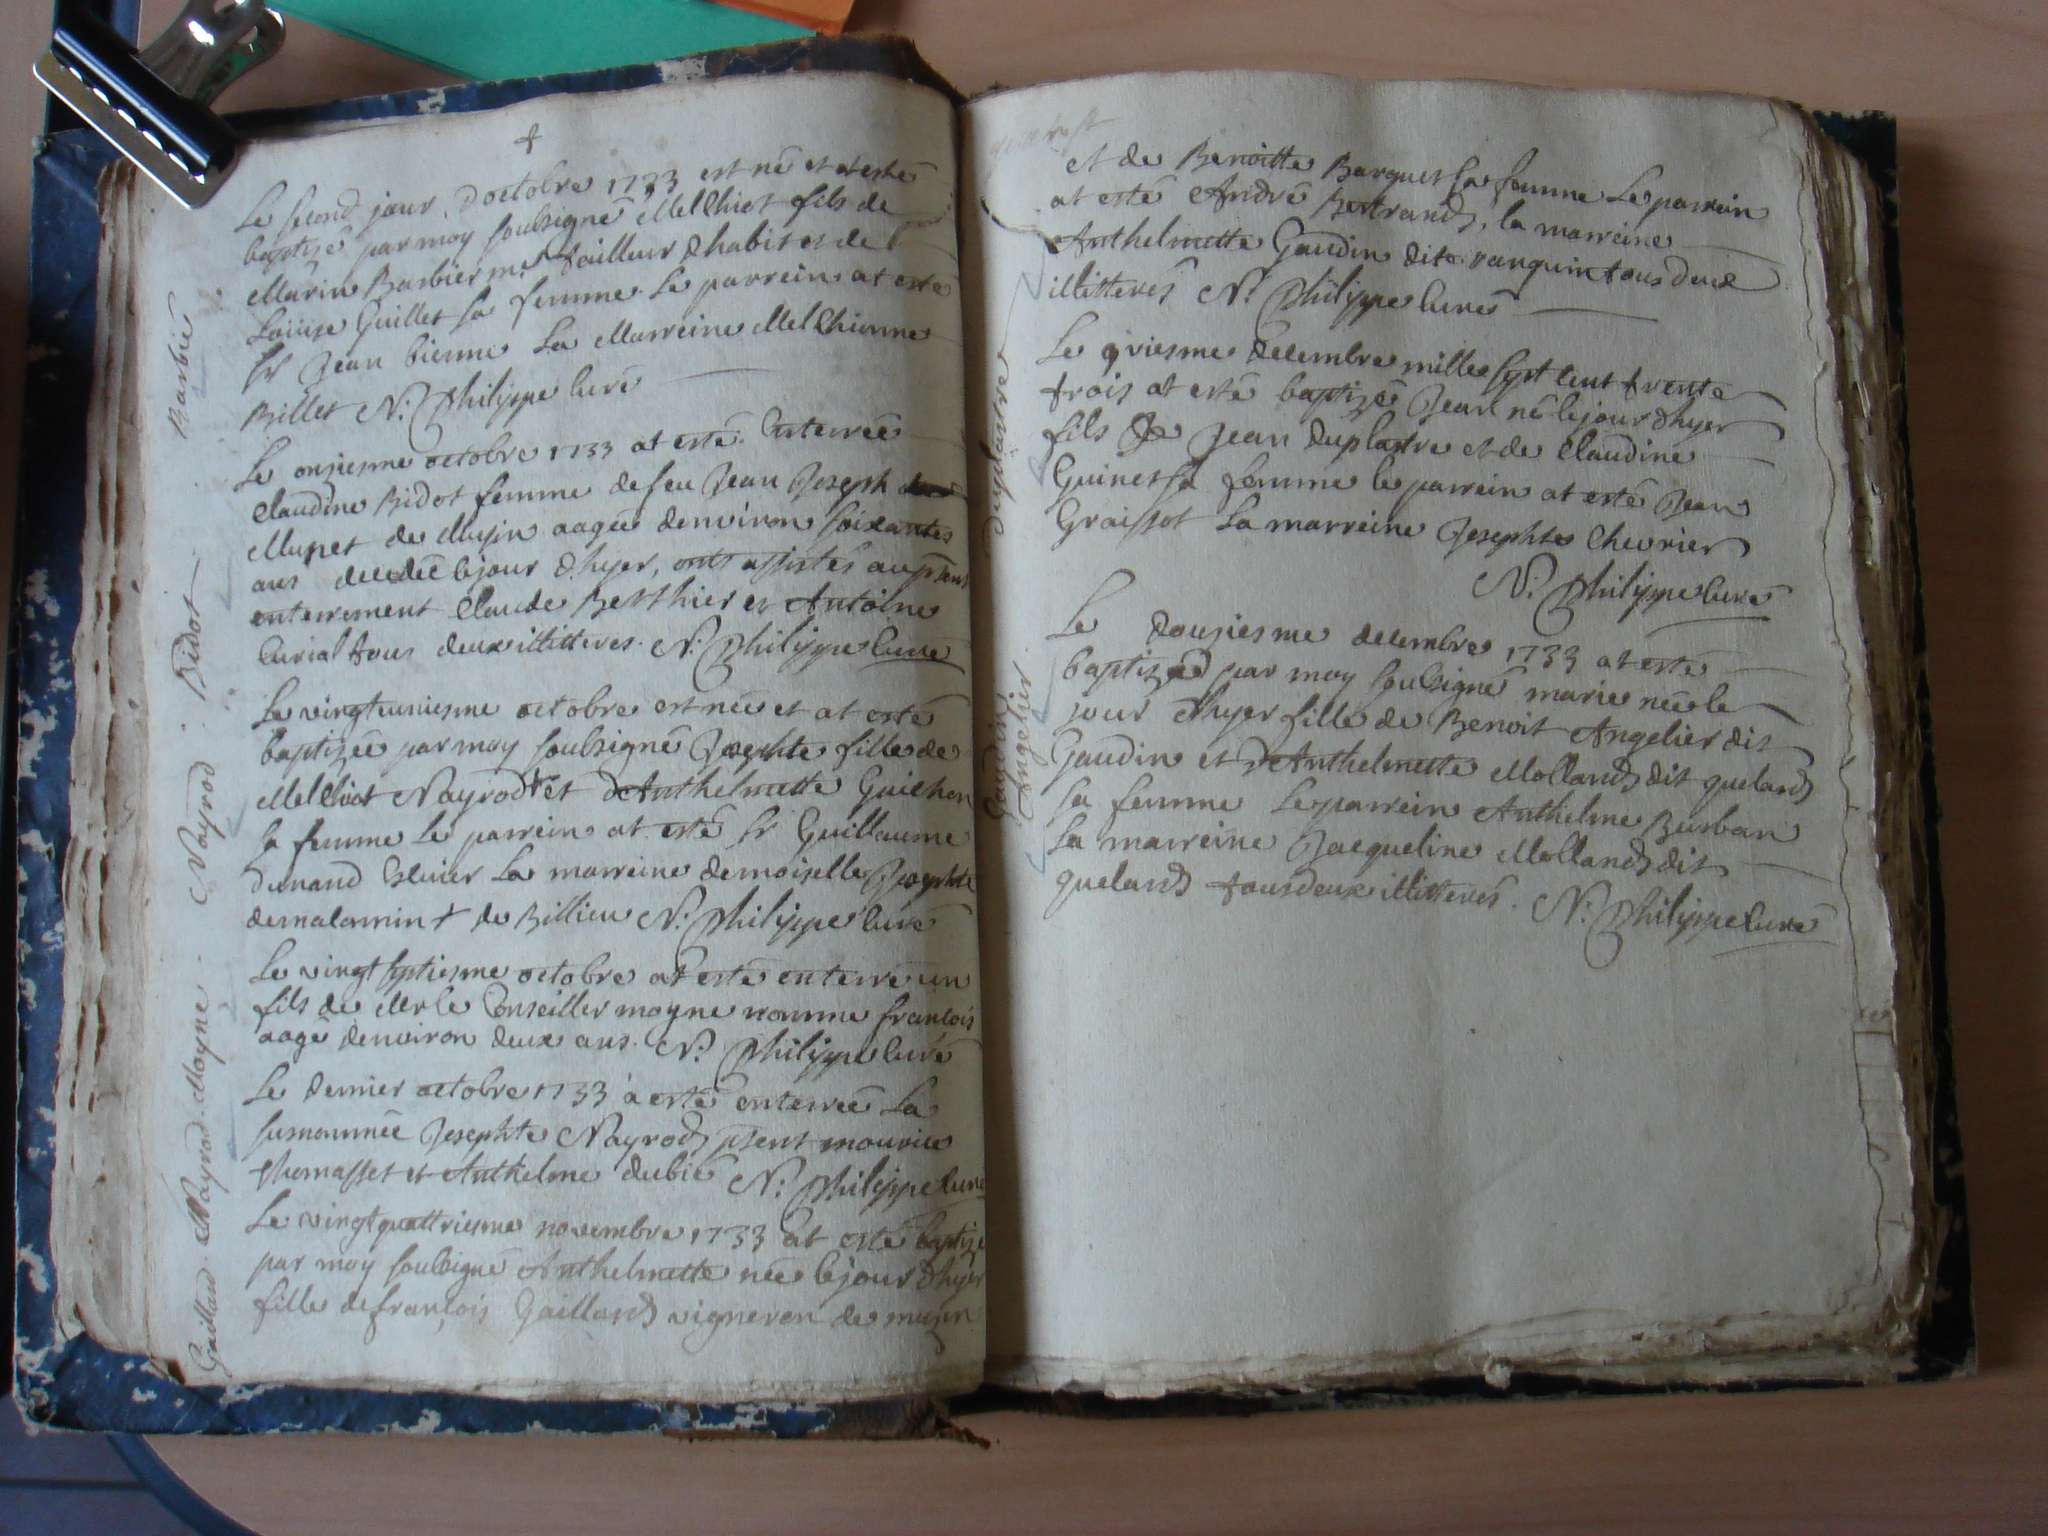 Le second jour d'octobre 1733 est né et at esté
baptizé par moy soubsigné Melchiot fils de
Marin Barbier me tailleur d'habits et de
Louise Guillet sa femme. Le parrein at esté
sr Jean bienne La Marreine Melchionne
Billet N: Philippe curé
Le onziesme octobre 1733 at esté enterrée
Claudine Bidot femme de feu Jean Joseph
Mupet de Musin aagée denviron soixantes
ans decedée le jour d'hyer, onts assistés au pnt
enterrement Claude Berthier et Antoine
Curial tous deux illitteres. N: Philippe curé
Le vingtuniesme octobre est née et at esté
baptizée par moy soubsigné Josephte fille de
Melchiot Nayrod et d'Anthelmette Guichon
sa femme Le parrein at esté sr Guillaume
dunand La marreine demoiselle Josephte
demalamin de Billieu N: Philippe curé
Le vingt septiesme octobre at esté enterré un
fils de Mr le Conseiller moyne nommé françois
aagé denviron deux ans. N: Philippe curé
Le dernier octobre 1733 à esté enterrée La
susnommée Josephte Nayrod pnt mourice
thomasset et Anthelme dubié N: Philippe curé
Le vingt quattriesme novembre 1733 at esté baptizé
par moy soubsigné Anthelmette née le jour d'hyer
fille de françois Gaillard vigneron de musin
Barbié
Bidot
Nayrod
Moyne
Nayrod
Gaillard
et de Benoitte Barquet sa femme Le parrein
at esté André Bertrand, la marreine
Anthelmette Gaudin dite ranquin tous deux
illitterés N: Philippe curé
Le qriesme decembre mille sept cent trente
trois at esté baptizé Jean né le jour d'hyer
fils de Jean duplastre et de Claudine
Guinet sa femme le parrein at esté Jean
Graissot La marreine Josephte Chevrier
N: Philippe curé
Le douziesme decembre 1733 at esté
baptizée par moy soubsigné marie née le
jour d'hyer fille de Benoit Angelier dit
Gaudin et d'Anthelmette Molland dit queland
sa femme Le parrein Anthelme Burban
La marreine Jacqueline Molland dit
queland tous deux illitterés. N: Philippe curé
Duplastre
Gaudin
Angelier